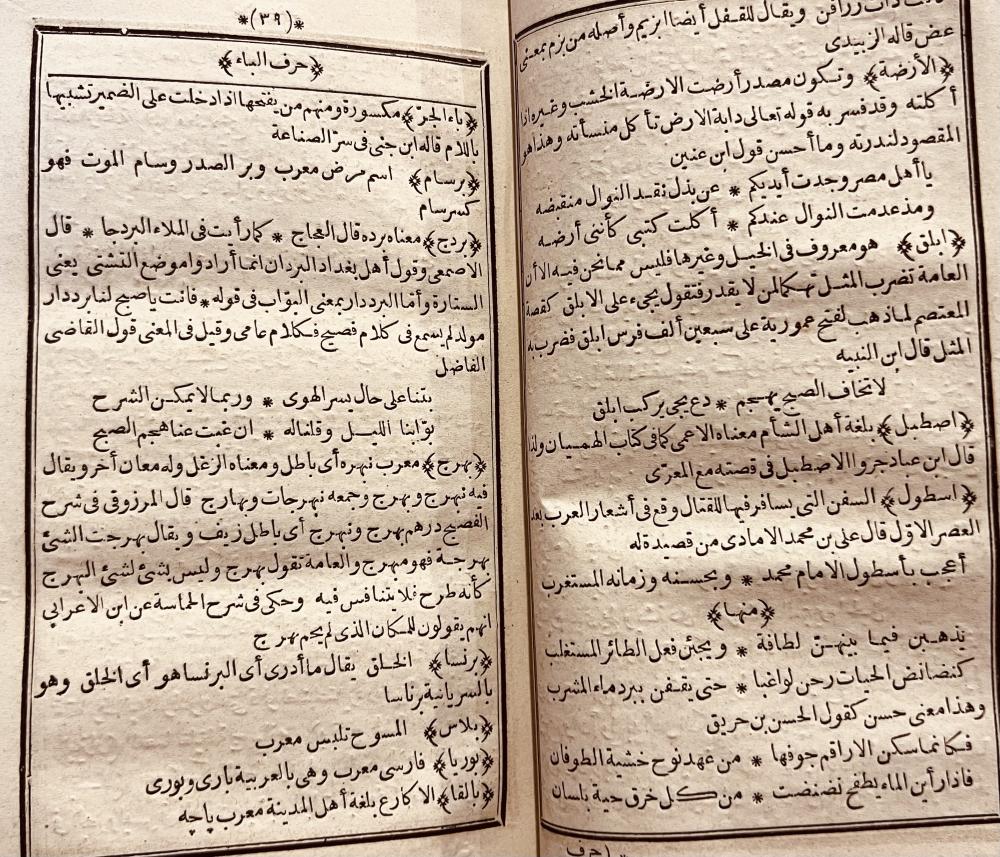 ويقال للقفل أيضا ابزيم وأصله من بزم بمعنى
عض قاله الزبيدى
﴿الأرضة﴾ وتكون مصدر أرضت الارضة الخشب وغيره اذا
أكلته وقد فسر به قوله تعالى دابة الارض تأكل منسأته وهذا هو
المقصود لندرته وما أحسن قول ابن عنين
يا أهل مصر وجدت أيديكم * عن بذل نقد النوال منقبضه
ومذ عدمت النوال عندكم * أكلت كتبى كأننى أرضه
﴿ابلق﴾ هو معروف فى الخيل وغيرها فليس مما نحن فيه الا أن
العامة تضرب المثل تهكما لمن لا يقدر فتقول يجىء على الابلق كقصة
المعتصم لما ذهب لفتح عمورية على سبعين ألف فرس ابلق فضرب به
المثل قال ابن النبيه
لا تخاف الصبح يهجم * دع يجى يركب ابلق
﴿اصطبل﴾ بلغة أهل الشأم معناه الاعمى كما فى كتاب الهميان ولذا
قال ابن عباد جروا الاصطبل فى قصته مع المعرى
﴿اسطول﴾ السفن التى يسافر فيها للقتال وقع فى أشعار العرب بعد
العصر الاول قال على بن محمد الامادى من قصيدة له
أعجب بأسطول الامام محمد * وبحسنه وزمانه المستغرب
﴿منها﴾
يذهبن فيما بينهن لطافة * ويجئن فعل الطائر المستغلب
كنضانض الحيات رحن لواغبا * حتى يقفن ببرد ماء المشرب
وهذا معنى حسن كقول الحسن بن حريق
فكانما سكن الاراقم جوفها * من عهد نوح خشية الطوفان
فاذا رأين الماء يطفح نضنضت * من كل خرق حية بلسان
(حرف
*(٣٩)*
﴿حرف الباء﴾
﴿باء الجر﴾ مكسورة ومنهم من يفتحها اذا دخلت على الضمير تشبيها
باللام قاله ابن جنى فى سر الصناعة
﴿برسام﴾ اسم مرض معرب وبر الصدر وسام الموت فهو
كسرسام
﴿بردج﴾ معناه برده قال العجاج * كما رأيت فى الملاء البردجا * قال
الاصمعى وقول أهل بغداد البردان انما أرادوا موضع التشتى يعنى
الستارة وأما البرددار بمعنى البواب فى قوله * فانت يا صبح لنا برددار
مولد لم يسمع فى كلام فصيح فكلام عامى وقيل فى المعنى قول القاضى
الفاضل
بتنا على حال يسر الهوى * وربما لا يمكن الشرح
بوابنا الليل وقلنا له * ان غبت عنا هجم الصبح
﴿بهرج﴾ معرب نبهره أى باطل ومعناه الزغل وله معان أخر ويقال
فيه نبهرج وبهرج وجمعه نبهرجات وبهارج قال المرزوقى فى شرح
الفصيح درهم بهرج ونبهرج أى باطل زيف ويقال بهرجت الشئ
بهرجة فهو مبهرج والعامة تقول بهرج وليس بشئ لشئ البهرج
كأنه طرح فلا يتنافس فيه وحكى فى شرح الحماسة عن ابن الاعرابى
انهم يقولون للمكان الذى لم يحم بهرج
﴿برنسا﴾ الخلق يقال ما أدرى أى البرنسا هو أى الخلق وهو
بالسريانية برناسا
﴿بلاس﴾ المسوح تلبس معرب
﴿بوريا﴾ فارسى معرب وهى بالعربية بارى وبورى
﴿بالقا﴾ الاكارع بلغة أهل المدينة معرب پاچه